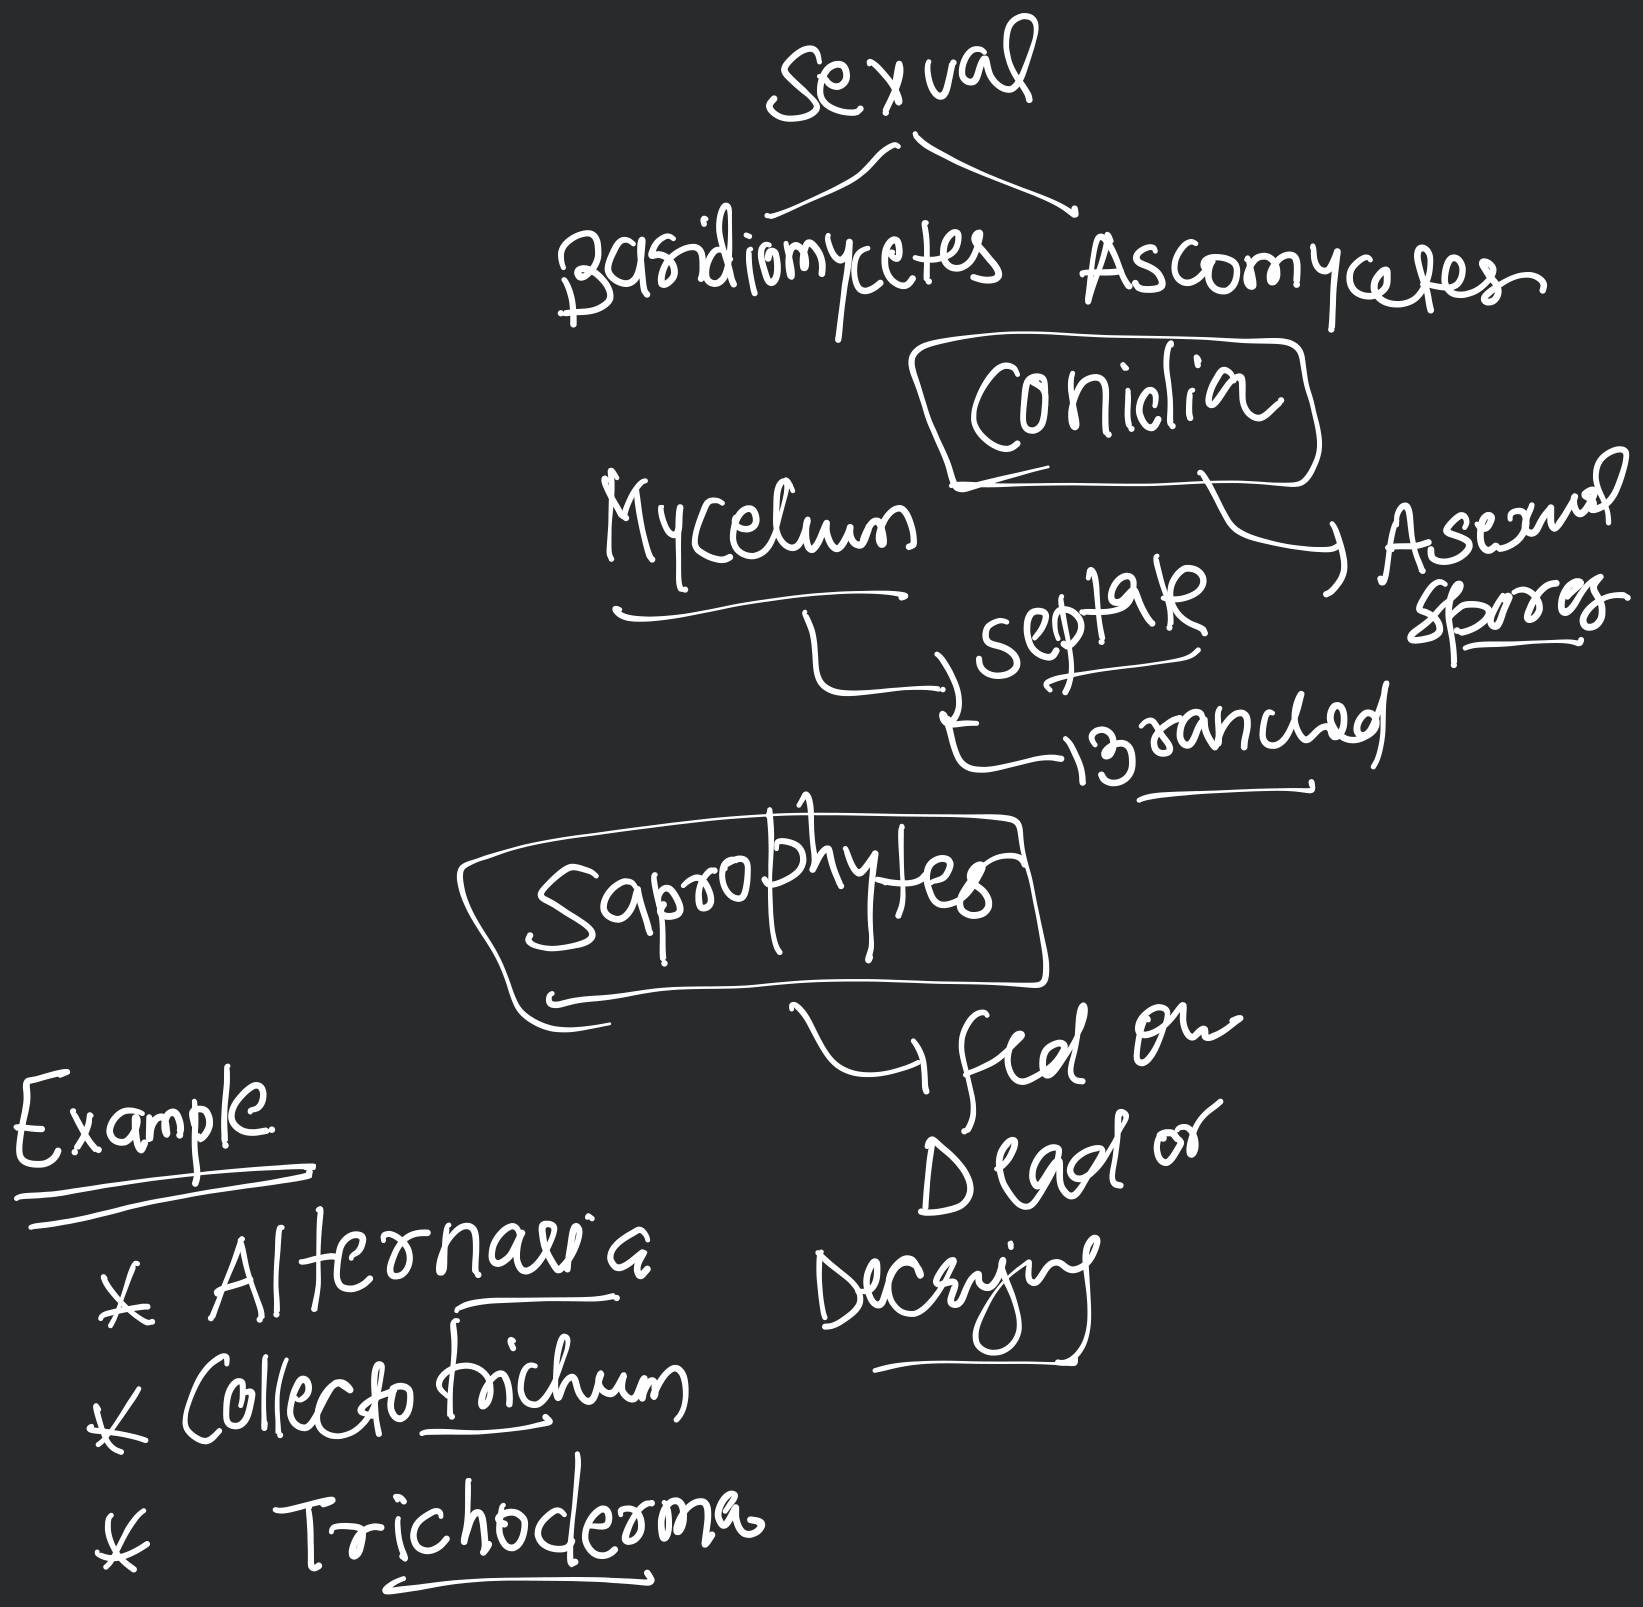 Sexual
Basidiomycetes Ascomycetes
Conidia
Asexual
spores
Mycelium
septate
Branched
Saprophytes
fed on
Dead or
Decaying
Example
* Alternaria
* Collectotrichum
* Trichoderma